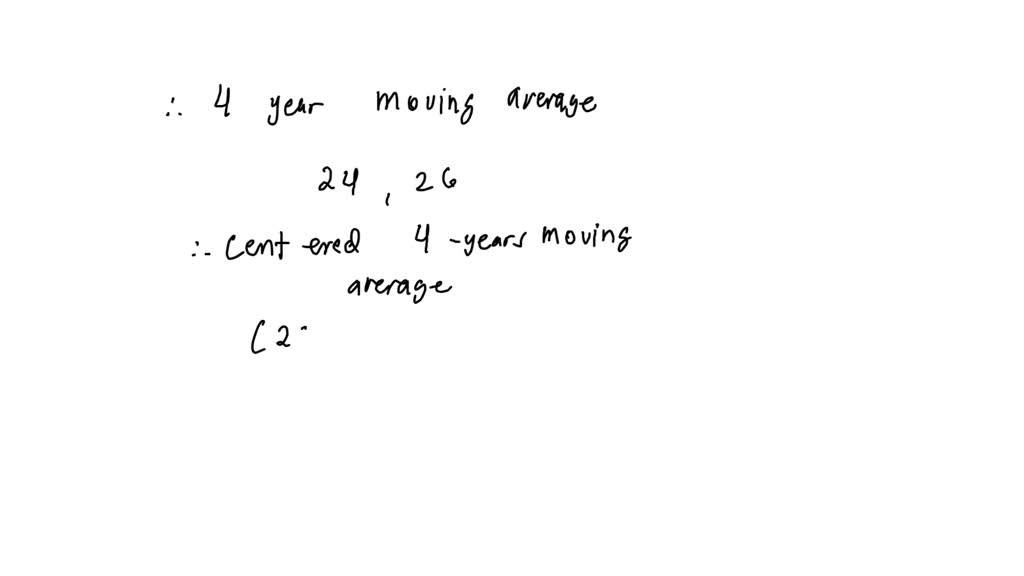 ∴ 4 year moving average
24 , 26
∴ Centered 4-years moving
average
(2